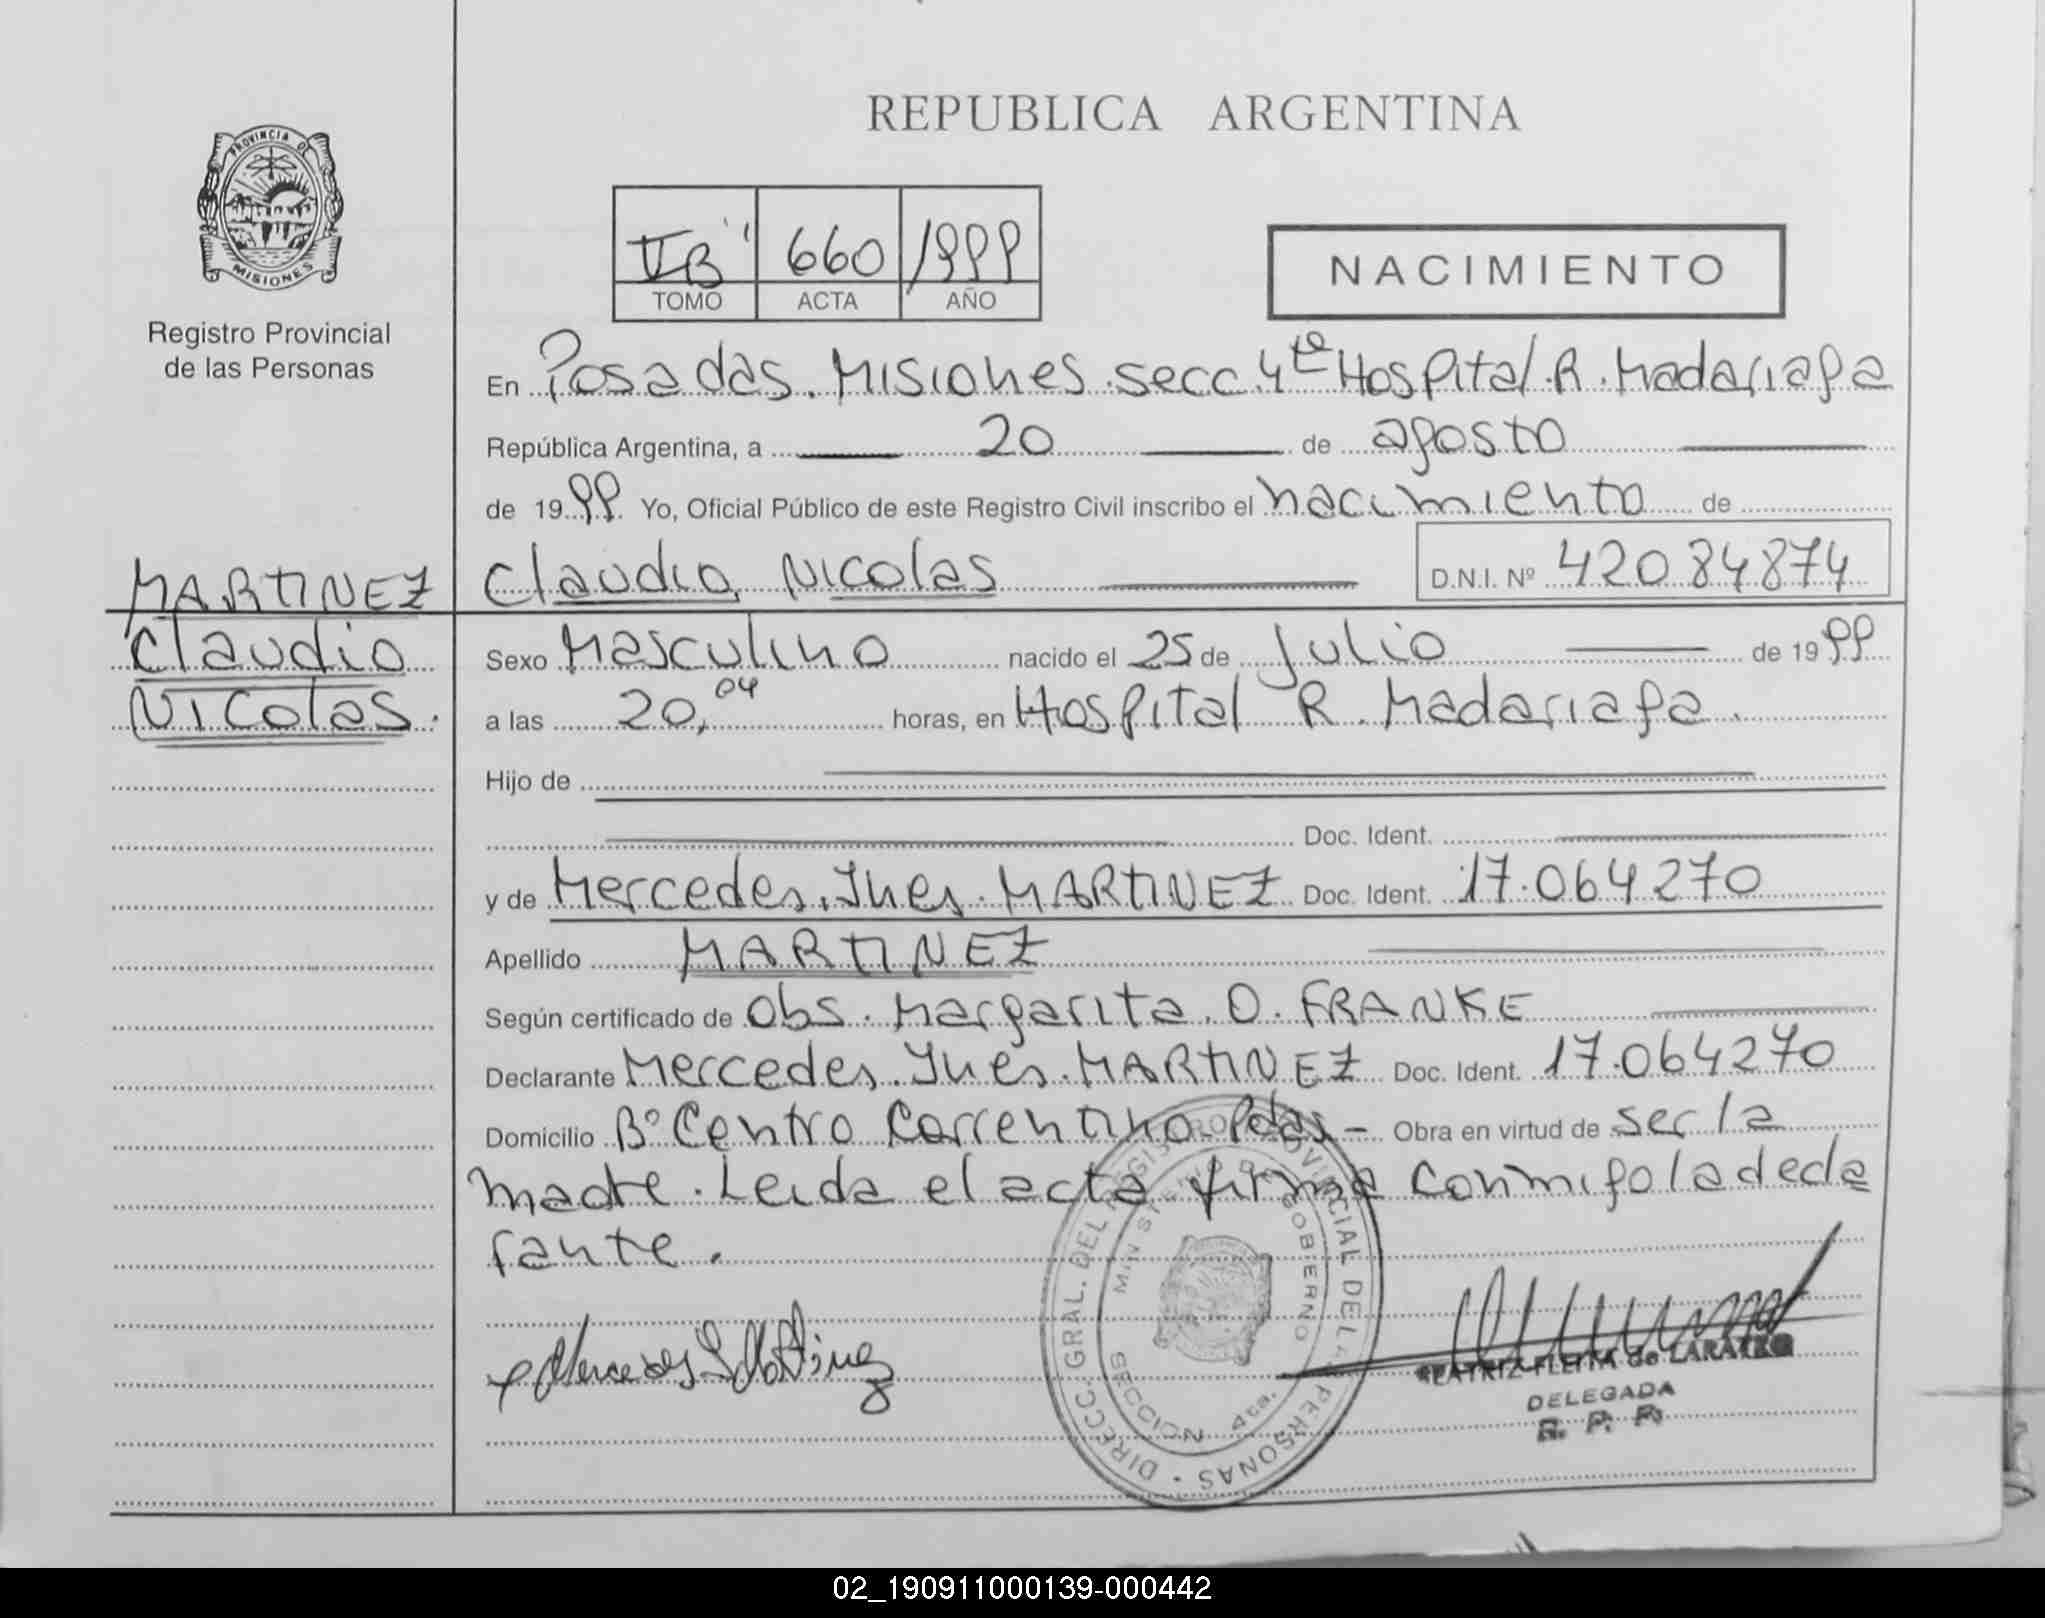 PROVINCIA DE
MISIONES
Registro Provincial
de las Personas
MARTINEZ
Claudio
Nicolas.
REPUBLICA ARGENTINA
660 1999
TOMO ACTA AÑO
NACIMIENTO
En Posadas. Misiones secc 4ta Hospital R. Madariaga
República Argentina, a 20 de agosto
de 1999 Yo, Oficial Público de este Registro Civil inscribo el nacimiento de
Claudio Nicolas D.N.I. Nº 42084874
Sexo Masculino nacido el 25 de Julio de 1999
a las 20,04 horas, en Hospital R. Madariaga.
Hijo de
Doc. Ident.
y de Mercedes Ines MARTINEZ Doc. Ident. 17.064270
Apellido MARTINEZ
Según certificado de Obs. Margarita O. FRANKE
Declarante Mercedes Ines MARTINEZ Doc. Ident. 17.064270
Domicilio Bº Centro Correntino Pdas - Obra en virtud de ser la
madre. Leida el acta firma conmigo la decla
rante.
Mercedes I Martinez
DIRECC. GRAL. DEL REGISTRO PROVINCIAL DE LAS PERSONAS
MINISTERIO DE GOBIERNO
SECCION 4ta.
BEATRIZ FLEITA de
DELEGADA
R. P. P.
02_190911000139-000442